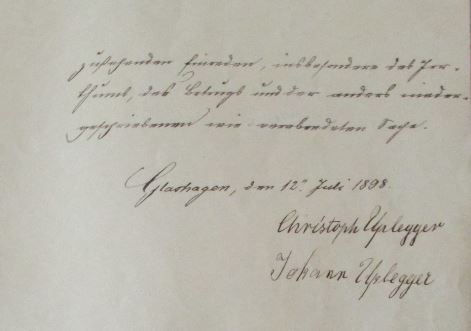 zustehenden Einreden, insbesondere des Irr-
thums, des Betrugs und der anders nieder-
geschriebenen wie verabredeten Sache.
Glashagen, den 12ⁿ Juli 1898.
Christoph Uplegger
Johann Uplegger